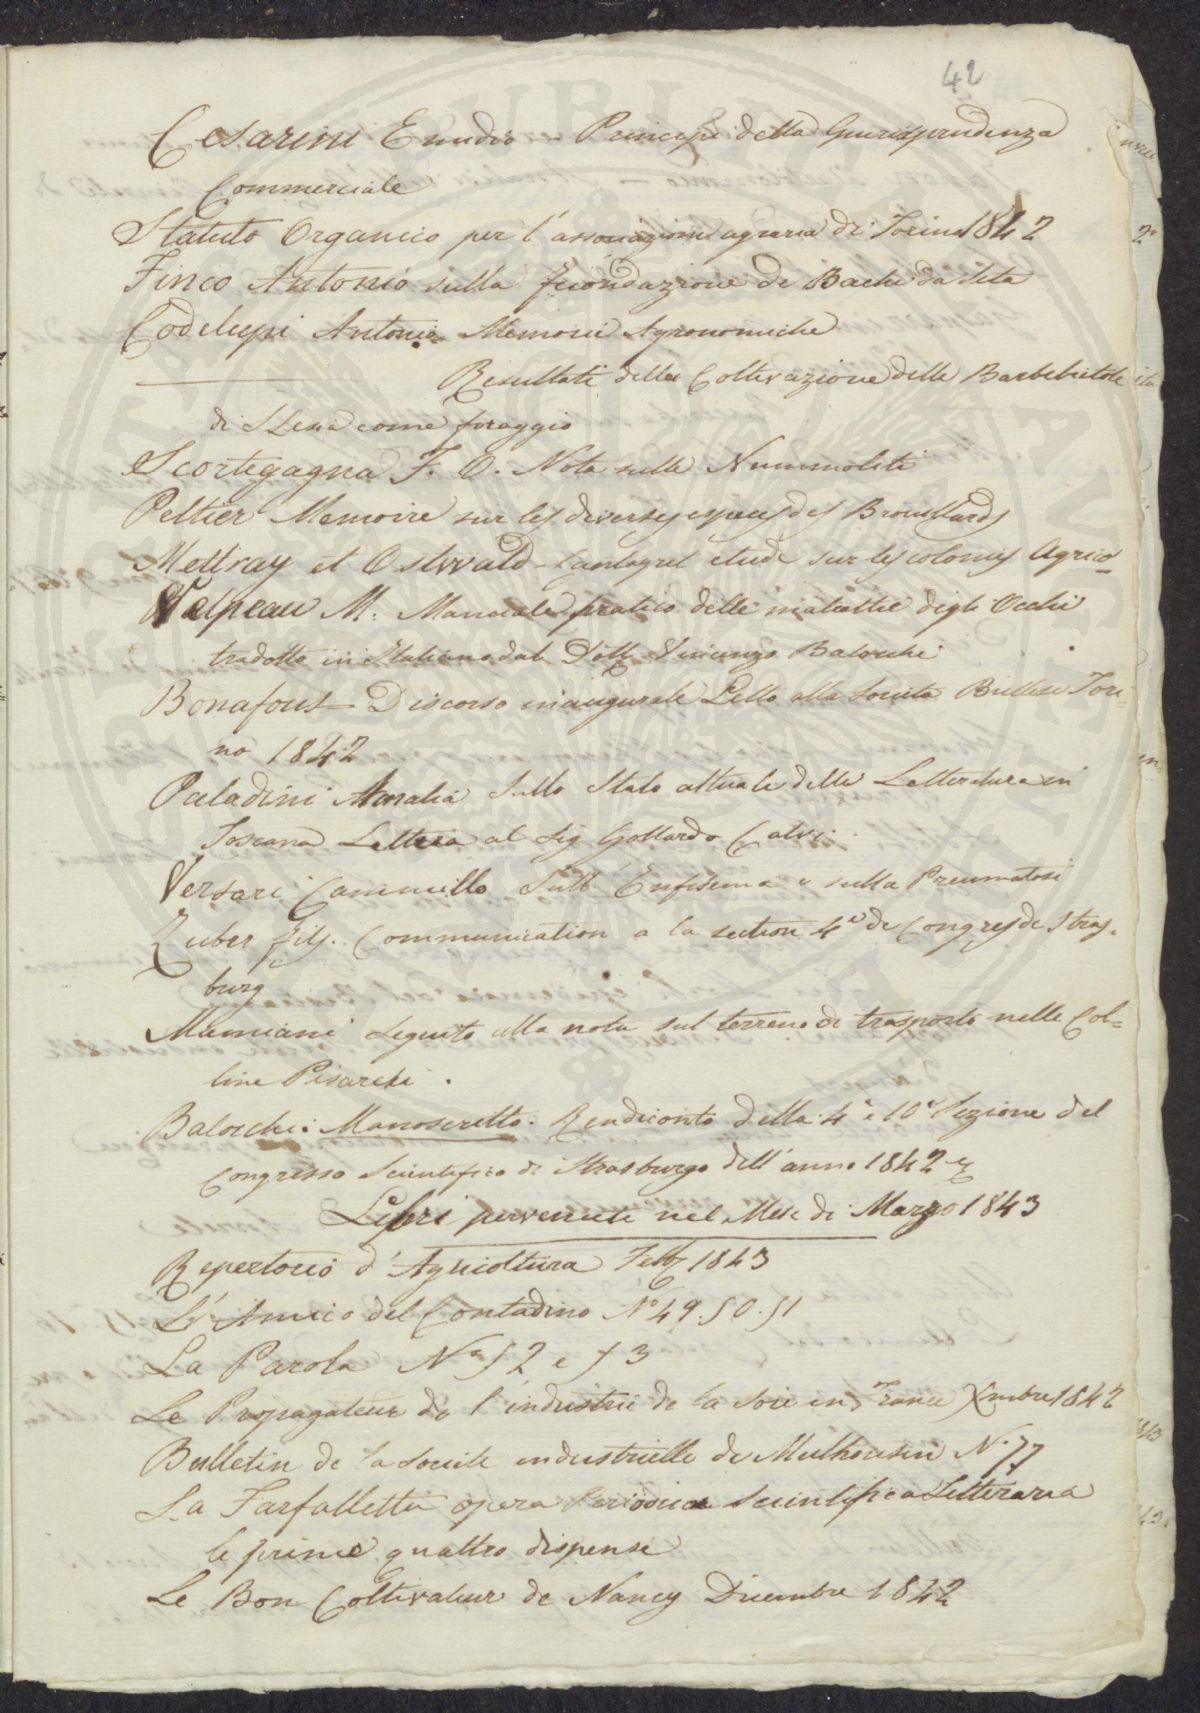 42
Cesarini Emidio Principi della Giurisprudenza
Commerciale
Statuto Organico per l'associazione agraria di Torino 1842
Finco Antonio sulla fecondazione de Bachi da Seta
Codelupi Antonio Memorie Agronomiche
Resultati della Coltivazione delle Barbebietole
di come foraggio
Scortegagna F. O. Nota sulle Nummoliti
Peltier Memoire sur les diverses especes des Brouillards
Mettray et Ostwald - Cantagrel etude sur les colonies Agrico=
Velpeau M. Manuale pratico delle malattie degli Occhi
tradotto in Italiano dal Dott. Vincenzo Balocchi
Bonafous - Discorso inaugurale Letto alla Societa Biellese Tori=
no 1842
Paladini Amalia Sullo Stato attuale della Letteratura in
Toscana Lettera al Sig Gottardo Calvi.
Versari Cammillo Sull Enfisema e sulla Pneumatosi
Zuber fils. Communication a la section 4e de Congres de Stras-
burg
Mamiani Seguito alla nota sul terreno di trasporto nelle Col=
line Pisarchi.
Balocchi: Manoscritto. Rendiconto della 4a e 10a Sezione del
Congresso Scientifico di Strasburgo dell'anno 1842
Libri pervenuti nel Mese di Marzo 1843
Repertorio d'Agricoltura Febb 1843
L'Amico del Contadino No 49. 50. 51
La Parola No 52 e 53
Le Propagateur de l'industrie de la soie en France Xmbre 1842
Bulletin de la Societe industrielle de Mulhousen N. 77
La Farfalletta opera Periodica Scientifica Letteraria
le prime quattro dispense
Le Bon Coltivateur de Nancy Dicembre 1842